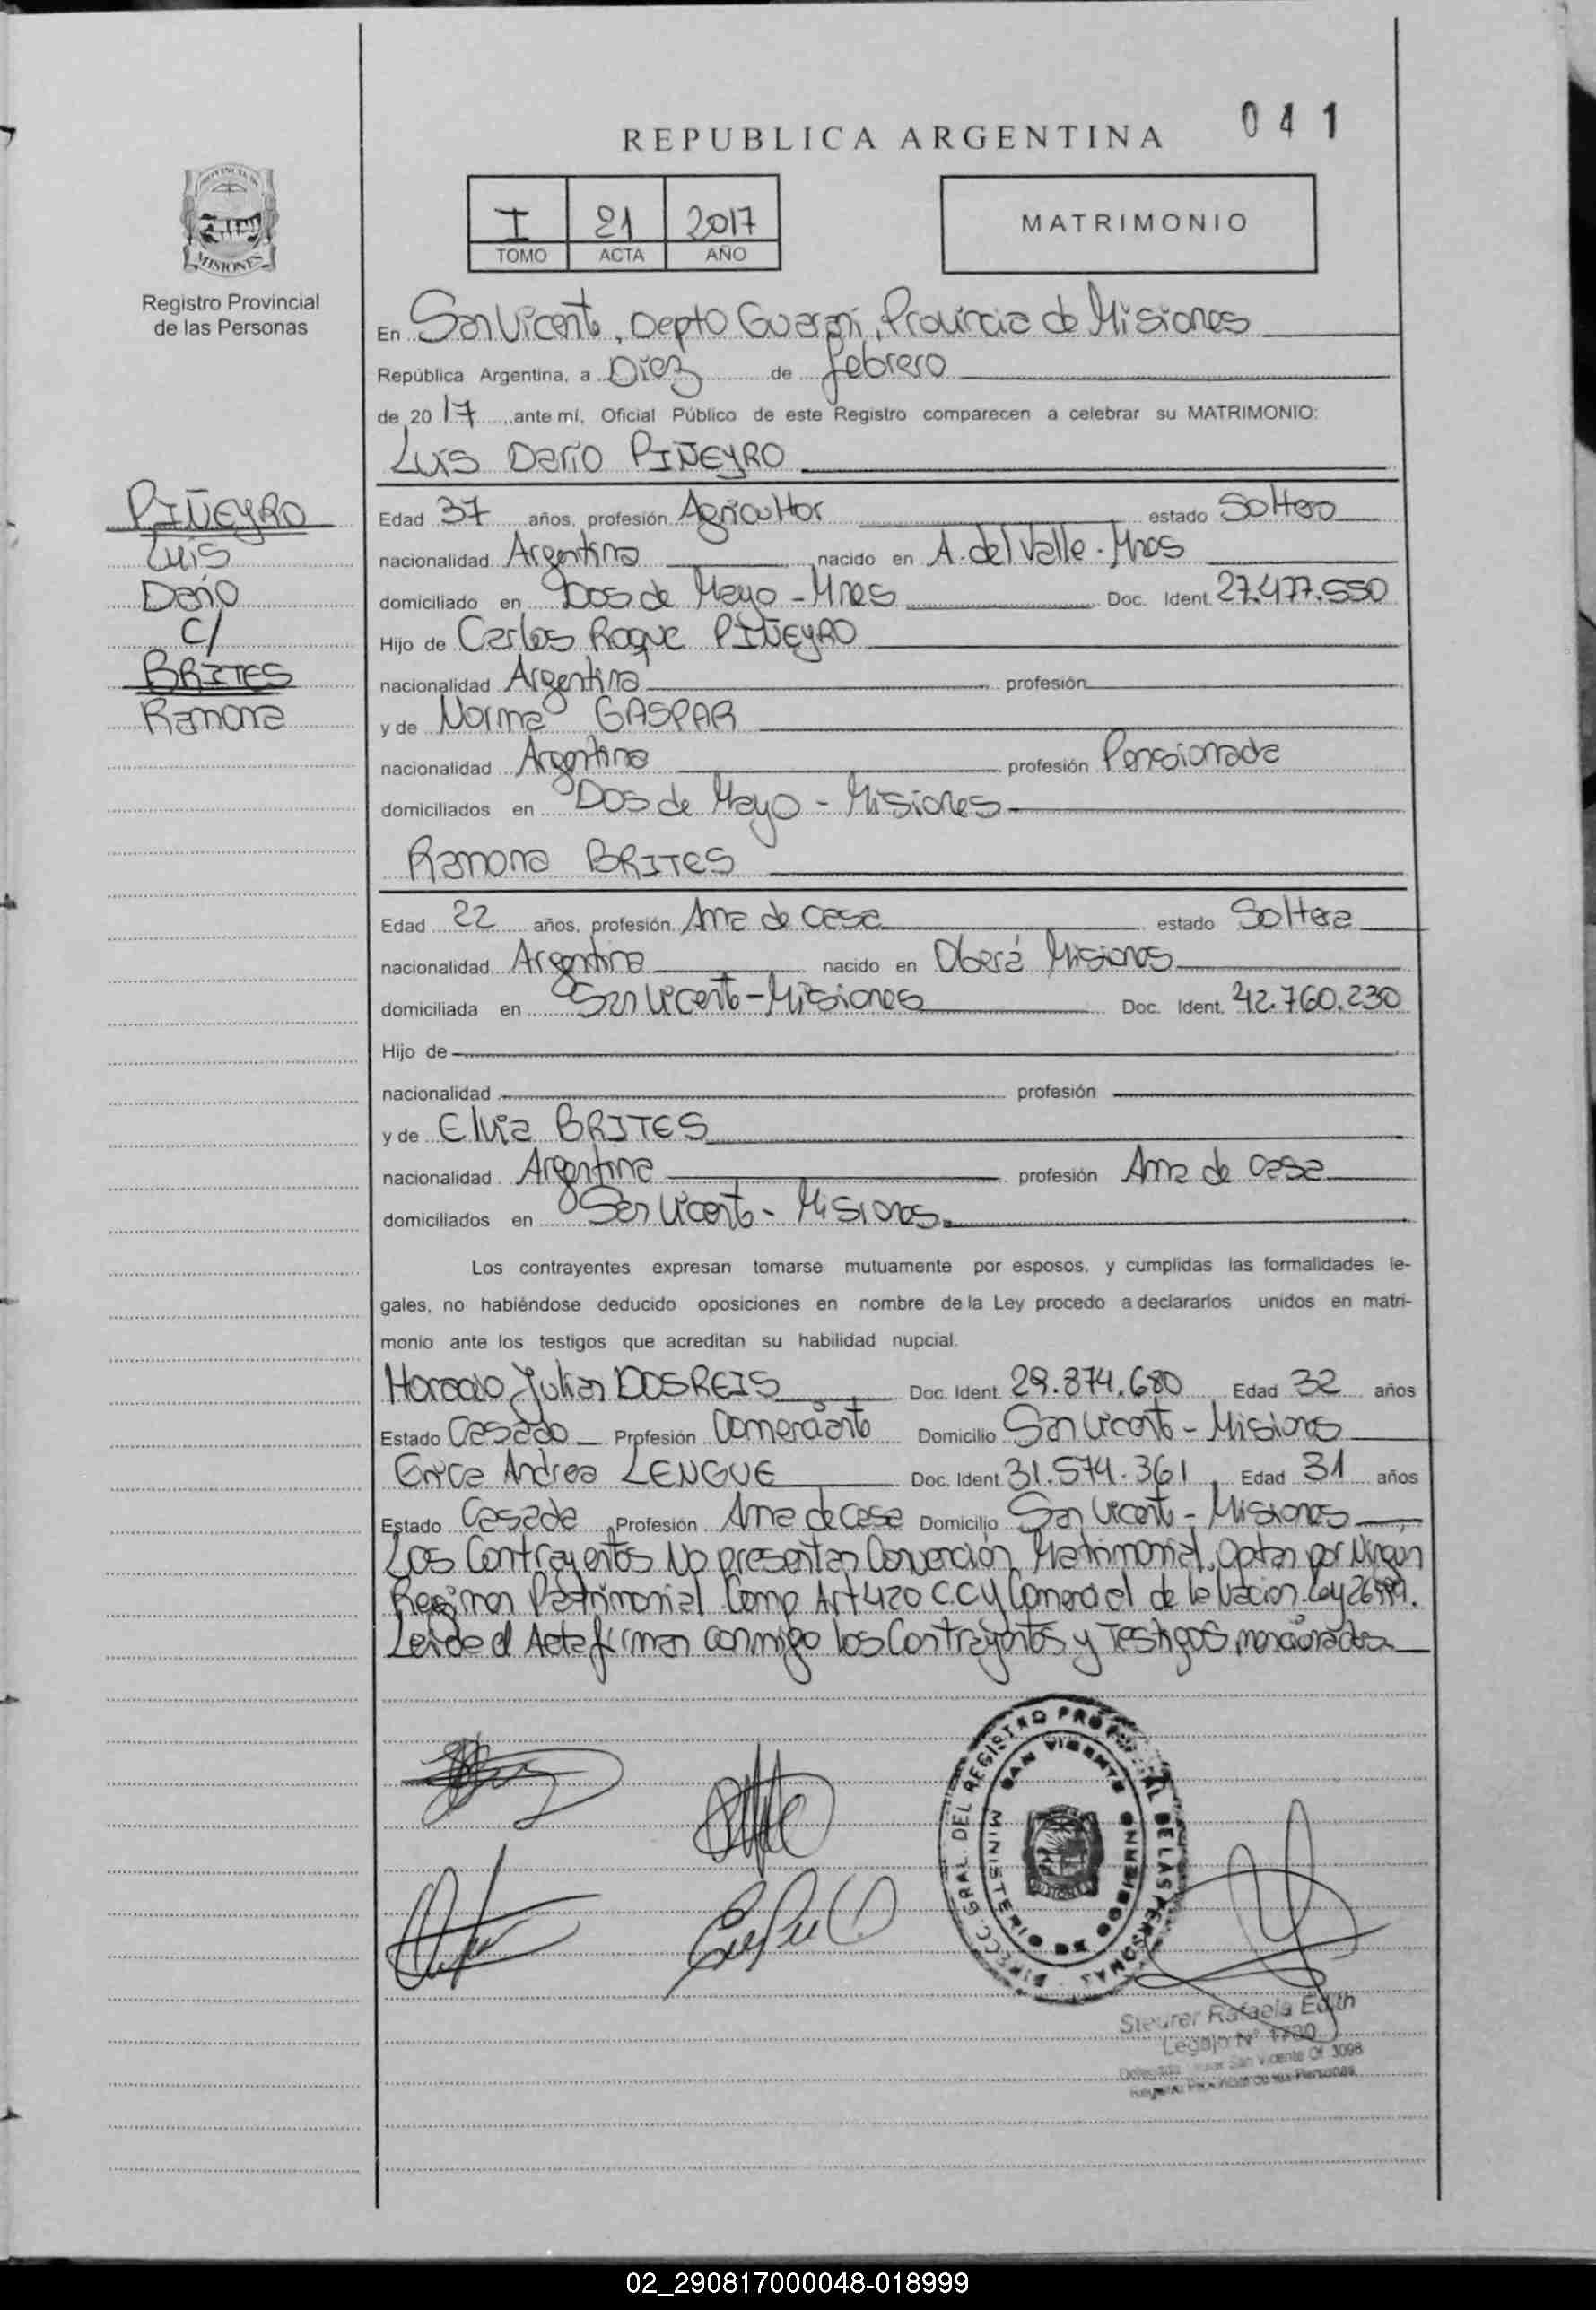 041
REPUBLICA ARGENTINA
I 21 2017
TOMO ACTA AÑO
MATRIMONIO
PROVINCIA DE
MISIONES
Registro Provincial
de las Personas
PIÑEYRO
Luis
Darío
C/
BRITES
Ramona
En San Vicente, Depto Guaraní, Provincia de Misiones
República Argentina, a Diez de febrero
de 2017 ante mí, Oficial Público de este Registro comparecen a celebrar su MATRIMONIO:
Luis Darío PIÑEYRO
Edad 37 años, profesión Agricultor estado Soltero
nacionalidad Argentina nacido en A. del Valle - Mnes
domiciliado en Dos de Mayo - Mnes Doc. Ident. 27.477.550
Hijo de Carlos Roque PIÑEYRO
nacionalidad Argentina profesión
y de Norma GASPAR
nacionalidad Argentina profesión Pensionada
domiciliados en Dos de Mayo - Misiones
Ramona BRITES
Edad 22 años, profesión Ama de casa estado Soltera
nacionalidad Argentina nacido en Oberá Misiones
domiciliada en San Vicente - Misiones Doc. Ident. 42.760.230
Hijo de
nacionalidad profesión
y de Elvia BRITES
nacionalidad Argentina profesión Ama de casa
domiciliados en San Vicente - Misiones
Los contrayentes expresan tomarse mutuamente por esposos, y cumplidas las formalidades le-
gales, no habiéndose deducido oposiciones en nombre de la Ley procedo a declararlos unidos en matri-
monio ante los testigos que acreditan su habilidad nupcial.
Horacio Julian DOSREIS Doc. Ident. 29.874.680 Edad 32 años
Estado Casado Profesión Comerciante Domicilio San Vicente - Misiones
Erica Andrea LENGUE Doc. Ident 31.574.361 Edad 31 años
Estado Casada Profesión Ama de casa Domicilio San Vicente - Misiones
Los Contrayentes No presentan Convención Matrimonial, Optan por Ningun
Regimen Patrimonial Comp Art 420 C.C y Comercial de la Nacion. Ley 26994.
Leida el Acta firman conmigo los Contrayentes y Testigos mencionados
DIRECC. GRAL. DEL REGISTRO PROVINCIAL DE LAS PERSONAS
SAN VICENTE
MINISTERIO DE GOBIERNO
MISIONES
Steurer Rafaela Edith
Legajo N° 1730
San Vicente Of. 3098
Registro Provincial de las Personas
02_290817000048-018999